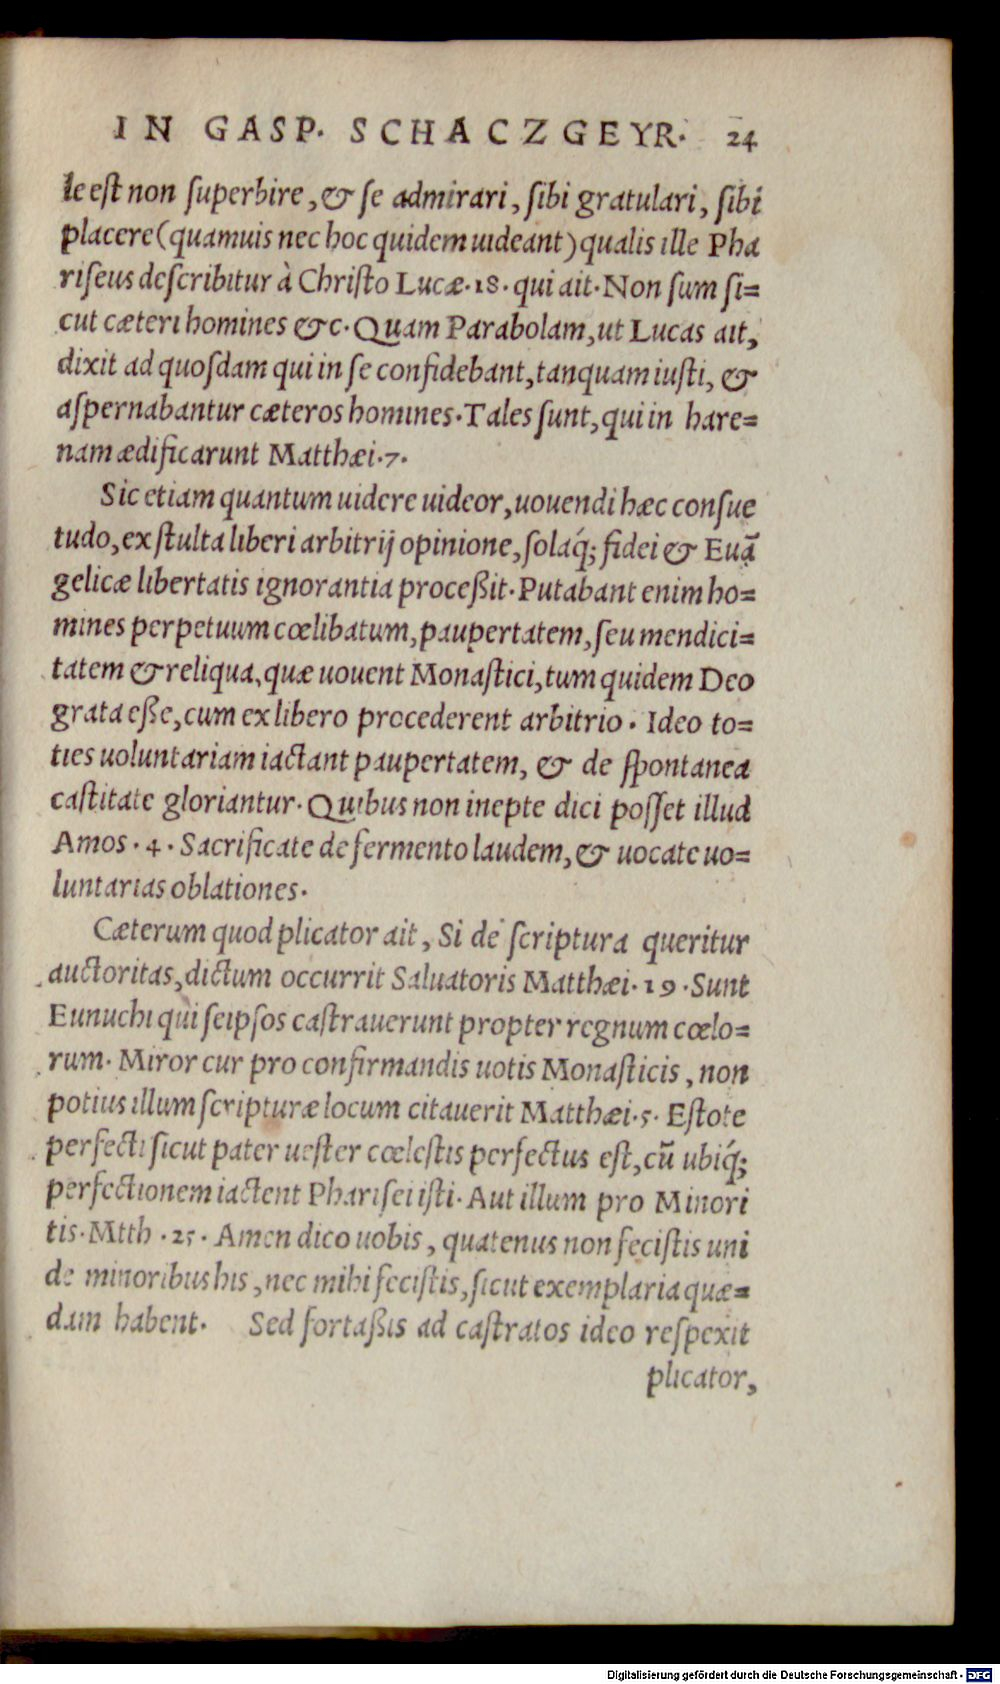 IN GASP. SCHACZGEYR. 24
le est non ſuperbire, & ſe admirari, ſibi gratulari, ſibi
placere (quamuis nec hoc quidem uideant) qualis ille Pha
riſeus deſcribitur à Chriſto Lucæ. 18. qui ait. Non ſum ſi=
cut cæteri homines &c. Quam Parabolam, ut Lucas ait,
dixit ad quoſdam qui in ſe confidebant, tanquam iuſti, &
aſpernabantur cæteros homines. Tales ſunt, qui in hare=
nam ædificarunt Matthæi. 7.
Sic etiam quantum uidere uideor, uouendi hæc conſue
tudo, ex ſtulta liberi arbitrij opinione, ſolaq́; fidei & Euā
gelicæ libertatis ignorantia proceßit. Putabant enim ho=
mines perpetuum cœlibatum, paupertatem, ſeu mendici=
tatem & reliqua, quæ uouent Monaſtici, tum quidem Deo
grata eße, cum ex libero procederent arbitrio. Ideo to=
ties uoluntariam iactant paupertatem, & de ſpontanea
caſtitate gloriantur. Quibus non inepte dici poſſet illud
Amos. 4. Sacrificate de fermento laudem, & uocate uo=
luntarias oblationes.
Cæterum quod plicator ait, Si de ſcriptura queritur
auctoritas, dictum occurrit Saluatoris Matthæi. 19. Sunt
Eunuchi qui ſeipſos caſtrauerunt propter regnum cœlo=
rum. Miror cur pro confirmandis uotis Monaſticis, non
potius illum ſcripturæ locum citauerit Matthæi. 5. Eſtote
perfecti ſicut pater ueſter cœleſtis perfectus eſt, cū ubiq́;
perfectionem iactent Phariſei iſti. Aut illum pro Minori
tis. Mtth. 25. Amen dico uobis, quatenus non feciſtis uni
de minoribus his, nec mihi feciſtis, ſicut exemplaria quæ=
dam habent. Sed fortaßis ad caſtratos ideo reſpexit
plicator,
Digitalisierung gefördert durch die Deutsche Forschungsgemeinschaft - DFG